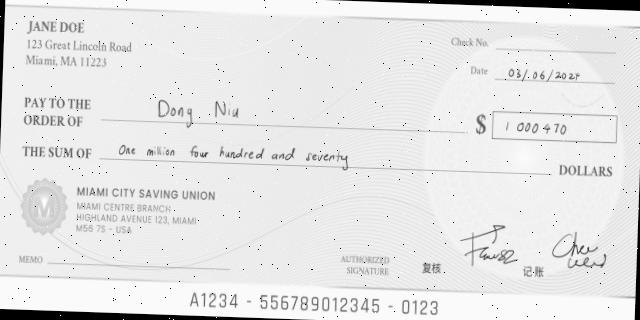 JANE DOE
123 Great Lincoln Road
Miami, MA 11223
Check No.
Date 03/06/2024
PAY TO THE
ORDER OF Dong Niu
$ 1 000 470
THE SUM OF One million four hundred and seventy DOLLARS
M
MIAMI CITY SAVING UNION
MIAMI CENTRE BRANCH
HIGHLAND AVENUE 123, MIAMI
M56 7S - USA
MEMO
AUTHORIZED
SIGNATURE
复核
记账
A1234 - 556789012345 - 0123